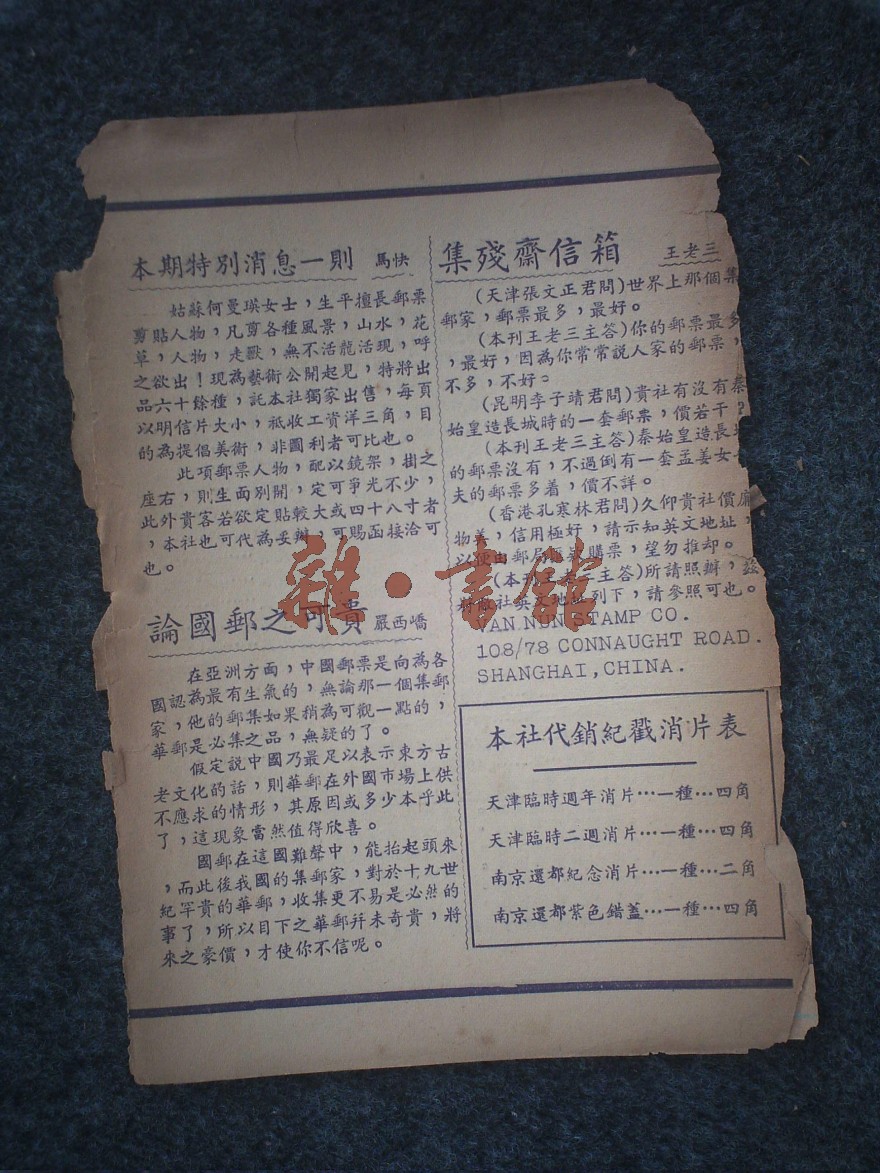 本期特別消息一則 馬快
姑蘇何曼瑛女士，生平擅長郵票
剪貼人物，凡剪各種風景，山水，花
草，人物，走獸，無不活龍活現，呼
之欲出！現為藝術公開起見，特將出
品六十餘種，託本社獨家出售，每頁
以明信片大小，祗收工資洋三角，目
的為提倡美術，非圖利者可比也。
此項郵票人物，配以鏡架，掛之
座右，則生面別開，定可爭光不少，
此外貴客若欲定貼較大或四十八寸者
，本社也可代為妥辦，可賜函接洽可
也。
論國郵之可貴 嚴西嶠
在亞洲方面，中國郵票是向為各
國認為最有生氣的，無論那一個集郵
家，他的郵集如果稍為可觀一點的，
華郵是必集之品，無疑的了。
假定說中國乃最足以表示東方古
老文化的話，則華郵在外國市場上供
不應求的情形，其原因或多少本乎此
了，這現象當然值得欣喜。
國郵在這國難聲中，能抬起頭來
，而此後我國的集郵家，對於十九世
紀罕貴的華郵，收集更不易是必然的
事了，所以目下之華郵幷未奇貴，將
來之豪價，才使你不信呢。
集殘齋信箱 王老三
(天津張文正君問)世界上那個集
郵家，郵票最多，最好。
(本刊王老三主答)你的郵票最多
，最好，因為你常常說人家的郵票，
不多，不好。
(昆明李子靖君問)貴社有沒有秦
始皇造長城時的一套郵票，價若干？
(本刊王老三主答)秦始皇造長
的郵票沒有，不過倒有一套孟姜女
夫的郵票多着，價不詳。
(香港孔寒林君問)久仰貴社價廉
物美，信用極好，請示知英文地址，
以便由郵局匯款購票，望勿推却。
(本刊王老三主答)所請照辦，茲
將敝社英文地址列下，請參照可也。
VAN NUN STAMP CO.
108/78 CONNAUGHT ROAD.
SHANGHAI, CHINA.
本社代銷紀戳消片表
天津臨時週年消片…一種…四角
天津臨時二週消片…一種…四角
南京還都紀念消片…一種…二角
南京還都紫色錯蓋…一種…四角
雜·書館